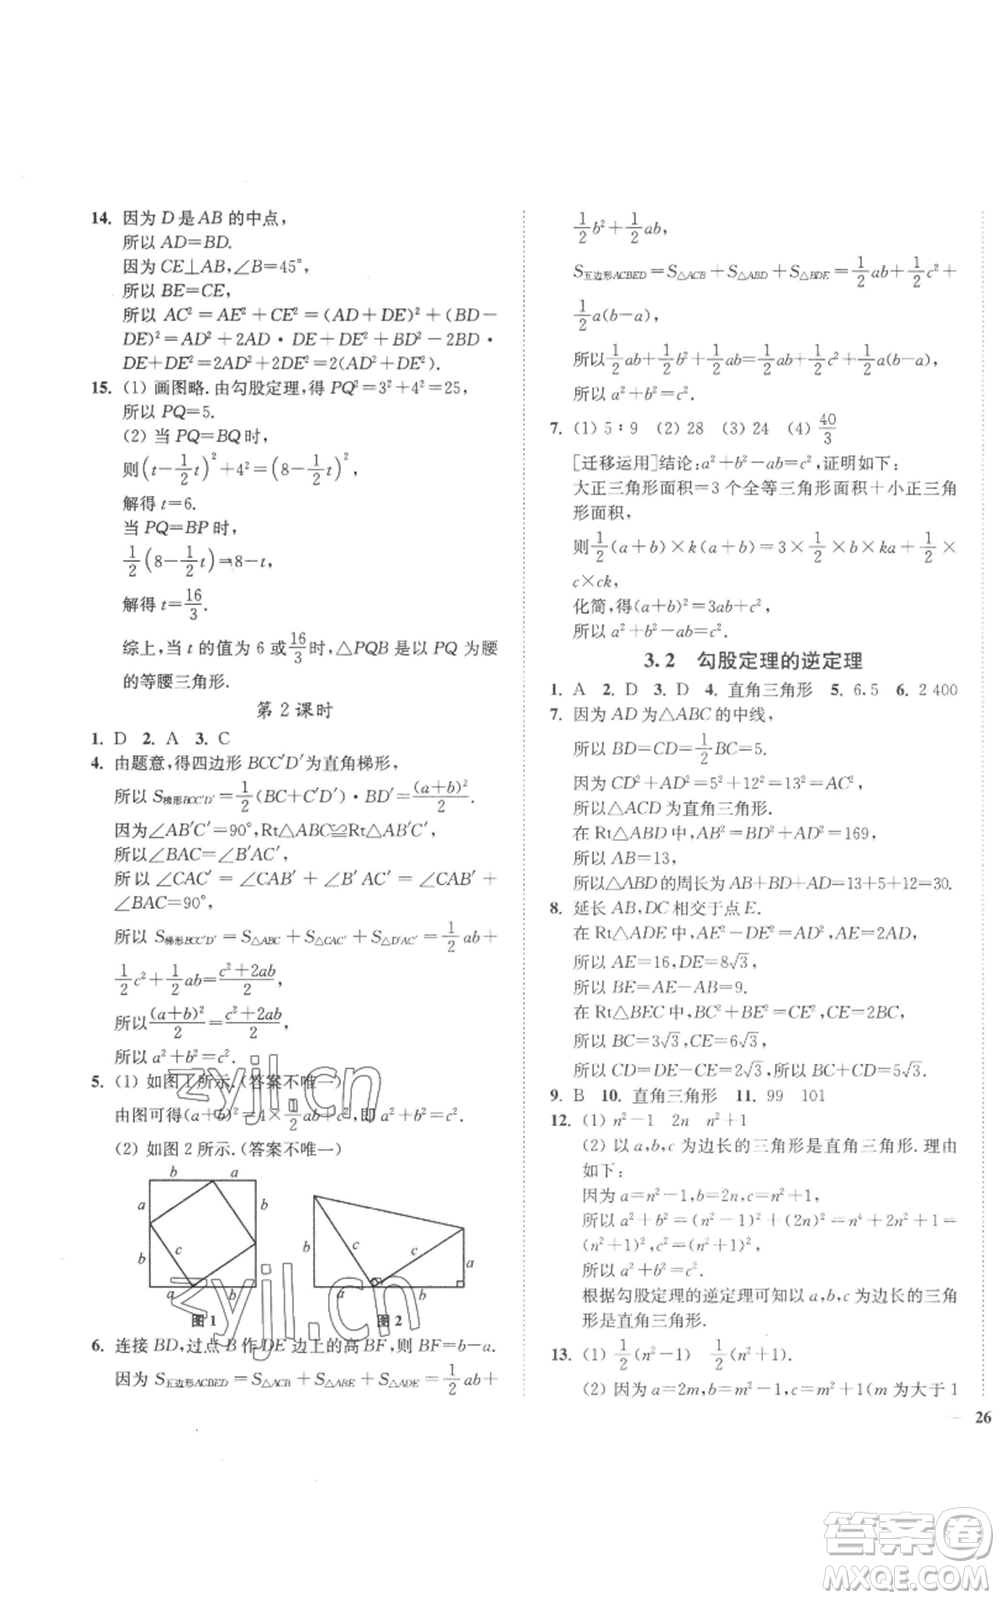 14. 因为 D 是 AB 的中点,
所以 AD=BD.
因为 CE⊥AB,∠B=45°,
所以 BE=CE,
所以 AC²=AE²+CE²=(AD+DE)²+(BD-
DE)²=AD²+2AD·DE+DE²+BD²-2BD·
DE+DE²=2AD²+2DE²=2(AD²+DE²).
15. (1) 画图略.由勾股定理,得 PQ²=3²+4²=25,
所以 PQ=5.
(2) 当 PQ=BQ 时,
则(t-1/2t)²+4²=(8-1/2t)²,
解得 t=6.
当 PQ=BP 时,
1/2(8-1/2t)=8-t,
解得 t=16/3.
综上,当 t 的值为 6 或16/3时,△PQB 是以 PQ 为腰
的等腰三角形.
第 2 课时
1. D 2. A 3. C
4. 由题意,得四边形 BCC′D′为直角梯形,
所以 S梯形BCC′D′=1/2(BC+C′D′)·BD′=(a+b)²/2.
因为∠AB′C′=90°,Rt△ABC≌Rt△AB′C′,
所以∠BAC=∠B′AC′,
所以∠CAC′=∠CAB′+∠B′AC′=∠CAB′+
∠BAC=90°,
所以 S梯形BCC′D′=S△ABC+S△CAC′+S△D′AC′=1/2ab+
1/2c²+1/2ab=(c²+2ab)/2,
所以(a+b)²/2=(c²+2ab)/2,
所以 a²+b²=c².
5. (1) 如图 1 所示.(答案不唯一)
由图可得(a+b)²=4×1/2ab+c²,即 a²+b²=c².
(2) 如图 2 所示.(答案不唯一)
b a
a b
c
b c
a b
图 1
c c
b a
a b
图 2
6. 连接 BD,过点 B 作 DE 边上的高 BF,则 BF=b-a.
因为 S五边形ACBED=S△ACB+S△ABE+S△ADE=1/2ab+
1/2b²+1/2ab,
S五边形ACBED=S△ACB+S△ABD+S△BDE=1/2ab+1/2c²+
1/2a(b-a),
所以1/2ab+1/2b²+1/2ab=1/2ab+1/2c²+1/2a(b-a),
所以 a²+b²=c².
7. (1) 5∶9 (2) 28 (3) 24 (4) 40/3
[迁移运用]结论:a²+b²-ab=c²,证明如下:
大正三角形面积=3 个全等三角形面积+小正三角
形面积,
则1/2(a+b)×k(a+b)=3×1/2×b×ka+1/2×
c×ck,
化简,得(a+b)²=3ab+c²,
所以 a²+b²-ab=c².
3.2 勾股定理的逆定理
1. A 2. D 3. D 4. 直角三角形 5. 6.5 6. 2 400
7. 因为 AD 为△ABC 的中线,
所以 BD=CD=1/2BC=5.
因为 CD²+AD²=5²+12²=13²=AC²,
所以△ACD 为直角三角形.
在 Rt△ABD 中,AB²=BD²+AD²=169,
所以 AB=13,
所以△ABD 的周长为 AB+BD+AD=13+5+12=30.
8. 延长 AB,DC 相交于点 E.
在 Rt△ADE 中,AE²-DE²=AD²,AE=2AD,
所以 AE=16,DE=8√3,
所以 BE=AE-AB=9.
在 Rt△BEC 中,BC²+BE²=CE²,CE=2BC,
所以 BC=3√3,CE=6√3,
所以 CD=DE-CE=2√3,所以 BC+CD=5√3.
9. B 10. 直角三角形 11. 99 101
12. (1) n²-1 2n n²+1
(2) 以 a,b,c 为边长的三角形是直角三角形.理由
如下:
因为 a=n²-1,b=2n,c=n²+1,
所以 a²+b²=(n²-1)²+(2n)²=n⁴+2n²+1=
(n²+1)²,c²=(n²+1)²,
所以 a²+b²=c².
根据勾股定理的逆定理可知以 a,b,c 为边长的三角
形是直角三角形.
13. (1) 1/2(n²-1) 1/2(n²+1).
(2) 因为 a=2m,b=m²-1,c=m²+1(m 为大于 1
26
zyjl.cn
zyjl.cn
答案卷
MXQE.COM